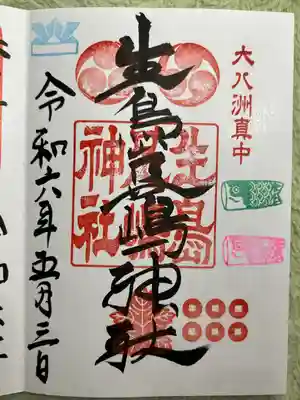 大八洲真中
生島足嶋神社
生島
神社
令和六年五月三日